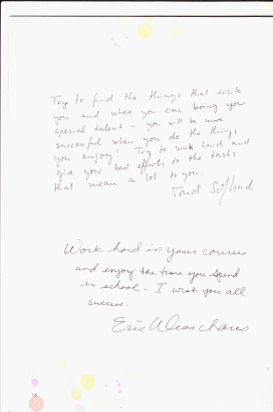 Try to find the things that excite
you and where you can bring your
special talent - you will be more
successful when you do the things
you enjoy! Try to work hard and
give your best efforts to the tasks
that mean a lot to you.
Work hard in your courses
and enjoy the time you spend
in school. I wish you all
success.
Eric Wieschaus